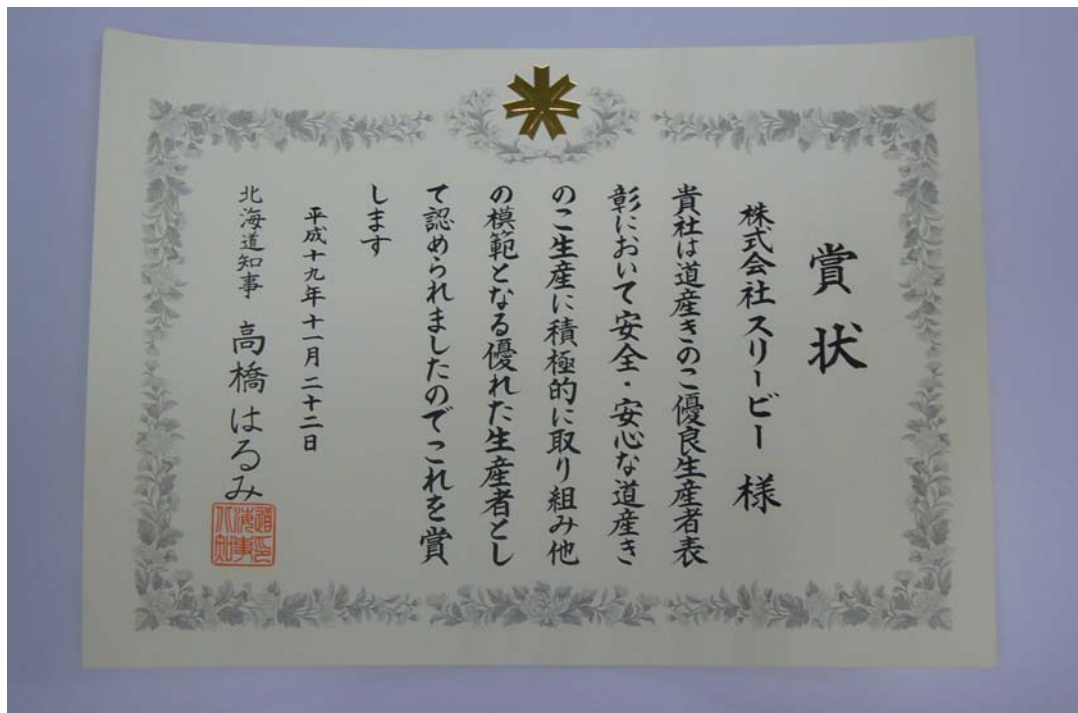 賞状
株式会社スリービー 様
貴社は道産きのこ優良生産者表
彰において安全・安心な道産き
のこ生産に積極的に取り組み他
の模範となる優れた生産者とし
て認められましたのでこれを賞
します
平成十九年十一月二十二日
北海道知事 高橋はるみ